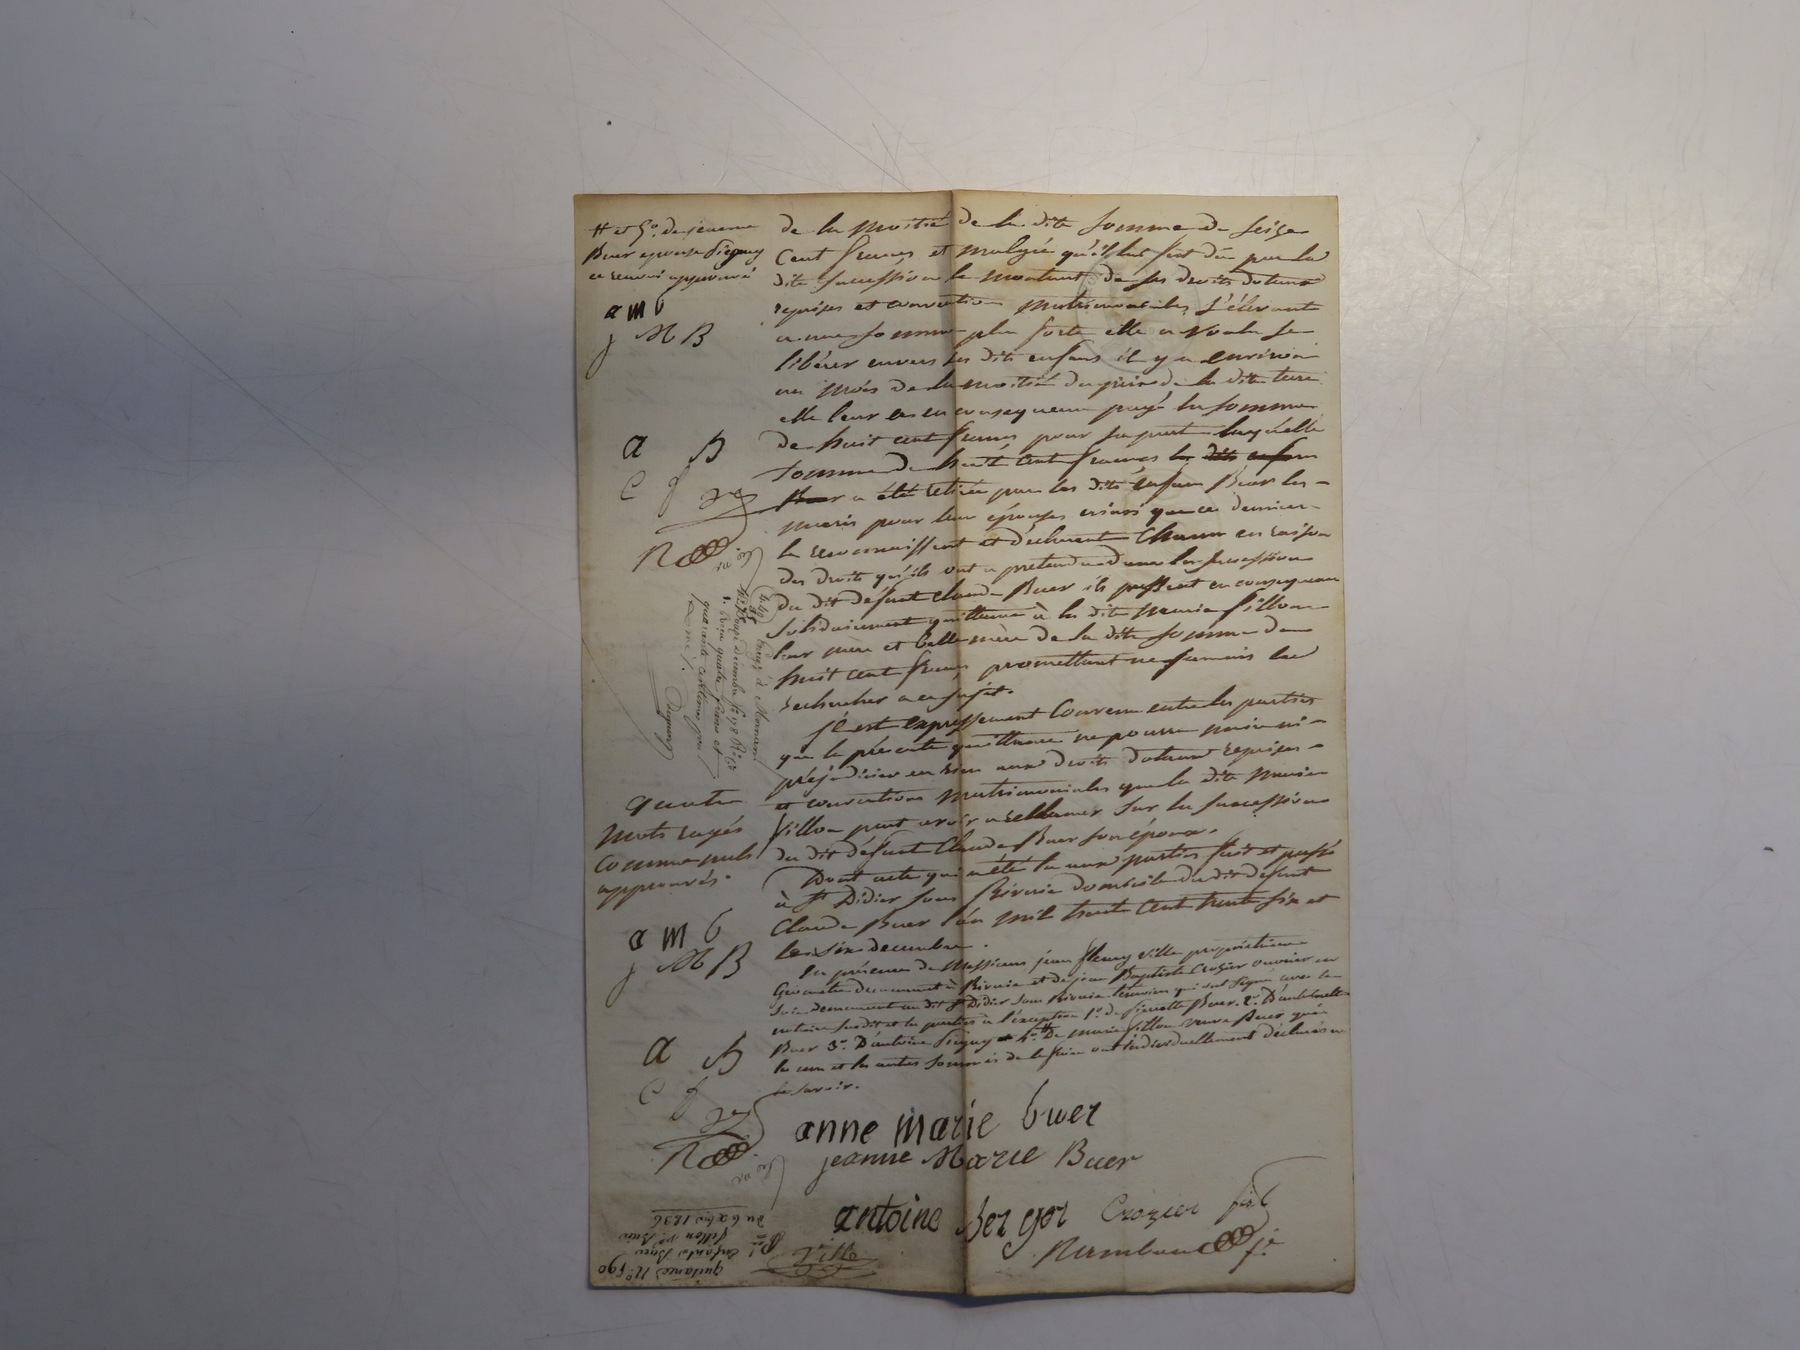 de la moitié de la dite somme de seize
Cent francs et malgré qu'il lui fut dû par la
dite succession le montant de ses droits dotaux
reprises et conventions matrimoniales s'élevant
a une somme plus forte elle a voulu se
libérer envers les dits enfans il y a environ
un mois de la moitié du prix de la dite terre
elle leur a en consequence payé la somme
de huit cent francs pour sa part laquelle
somme de huit cent francs les dits enfans
Buer a été retirée par les dits enfans Buer les
maris pour leur épouses ainsi que ces derniers
le reconnaissent et déclarent Chacun en raison
des droits qu'ils ont a prétendre dans la succession
du dit défunt Claude Buer ils passent en consequence
solidairement quittance à la dite Marie Fillon
leur mère et belle mère de la dite somme de
huit cent francs promettant ne jamais la
rechercher a ce sujet.
Il est expressement Convenu entre les parties
que la présente quittance ne pourra nuire ni
préjudicier en rien aux droits dotaux reprises
et conventions matrimoniales que la dite Marie
Fillon peut avoir a reclamer sur la succession
du dit défunt Claude Buer son époux.
Dont acte qui a été lu aux parties fait et passé
à St Didier sous Riverie domicile du dit défunt
Claude Buer l'an mil huit cent trente six et
le six decembre.
En présence de Messieurs jean fleury Ville propriétaire
Géomètre demeurant à Riverie et de jean Baptiste Crozier ouvrier en
soie demeurant au dit St Didier sous Riverie temoins qui ont signé avec le
notaire susdit et les parties à l'exception 1o. de Pierrette Buer 2o. D'
Buer 3o. D'antoine 4o. De marie Fillon veuve Buer qui
les uns et les autres sommés de le faire ont individuellement déclaré ne
le savoir.
anne marie buer
jeanne Marie Buer
antoine berger Crozier fils
Ville
# et 5o. de jeanne
Buer epouse
ce renvoi approuvé
a m b
j M B
a B
C f
R
Enregé à Mornant
decembre
quatre francs et
quarante centimes pour
quatre
mots rayés
comme nuls
approuvés.
a m b
j M B
a B
C f
R
quitance No. 590
enfants Buer
Fillon ve Buer
du 6 xbre 1836